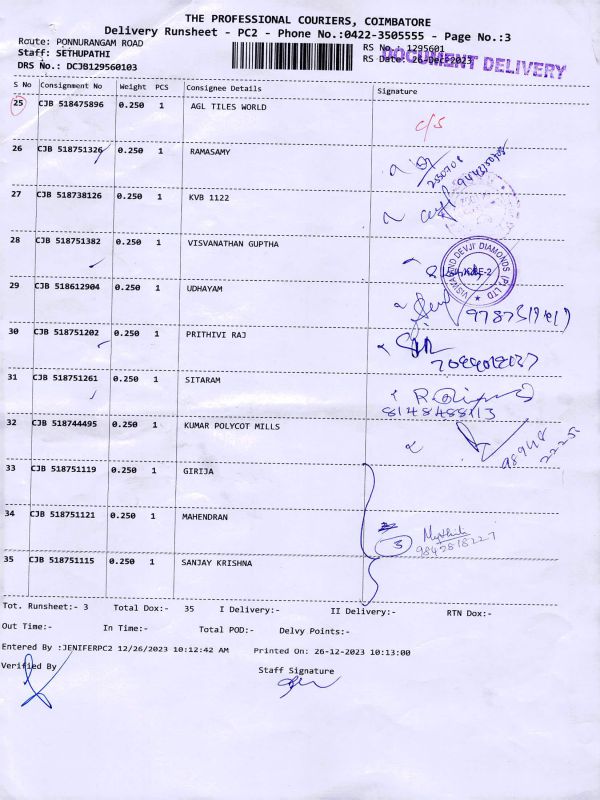 THE PROFESSIONAL COURIERS, COIMBATORE
Delivery Runsheet - PC2 - Phone No.:0422-3505555 - Page No.:3
Route: PONNURANGAM ROAD RS No.: 1295601
Staff: SETHUPATHI RS Date: 26-Dec-2023
DOCUMENT DELIVERY
DRS No.: DCJB129560103
S No Consignment No Weight PCS Consignee Details Signature
25 CJB 518475896 0.250 1 AGL TILES WORLD
c/s
26 CJB 518751326 0.250 1 RAMASAMY
27 CJB 518738126 0.250 1 KVB 1122
28 CJB 518751382 0.250 1 VISVANATHAN GUPTHA
29 CJB 518612904 0.250 1 UDHAYAM
30 CJB 518751202 0.250 1 PRITHIVI RAJ
31 CJB 518751261 0.250 1 SITARAM
8148488113
32 CJB 518744495 0.250 1 KUMAR POLYCOT MILLS
33 CJB 518751119 0.250 1 GIRIJA
34 CJB 518751121 0.250 1 MAHENDRAN
3
9842818227
35 CJB 518751115 0.250 1 SANJAY KRISHNA
Tot. Runsheet:- 3 Total Dox:- 35 I Delivery:- II Delivery:- RTN Dox:-
Out Time:- In Time:- Total POD:- Delvy Points:-
Entered By :JENIFERPC2 12/26/2023 10:12:42 AM Printed On: 26-12-2023 10:13:00
Verified By Staff Signature